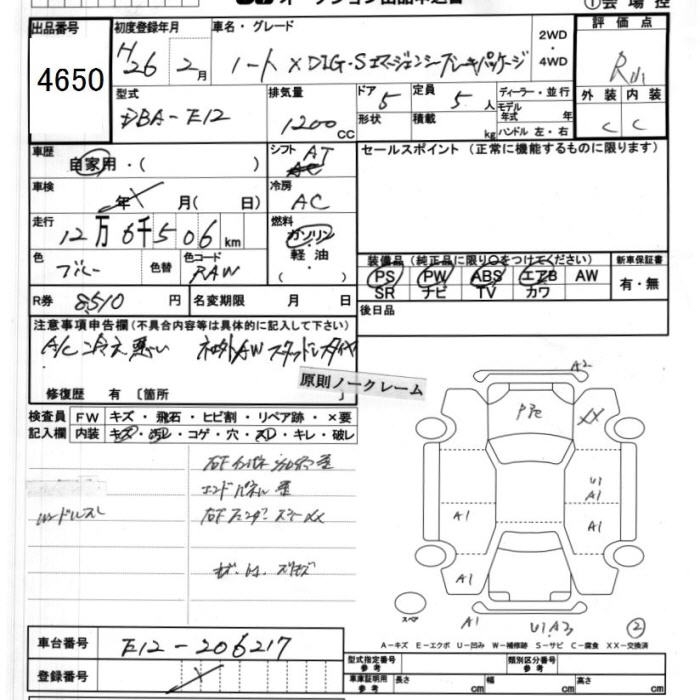 出品番号 初度登録年月 車名・グレード 2WD・4WD 評価点
4650 H26 2月 ノート X DIG・S エマージェンシーブレーキパッケージ
型式 排気量 ドア 5 定員 5人 ディーラー・並行 外装 内装
DBA-E12 1200CC 形状 積載 kg モデル年式 年 ハンドル 左・右 C C
車歴 自家用・( ) シフト AT セールスポイント (正常に機能するものに限ります)
車検 年 月( 日) 冷房 AC
走行 12万6千506km 燃料 ガソリン・軽油・( )
色 ブルー 色替 色コード RAW
装備品 (純正品に限り○をつけてください) 新車保証書
PS PW ABS エアB AW 有・無
SR ナビ TV カワ
R券 8510円 名変期限 月 日 後日品
注意事項申告欄(不具合内容等は具体的に記入して下さい)
A/C冷え悪い 社外AW スタッドレスタイヤ
修復歴 有 [箇所 ]
原則ノークレーム
検査員記入欄 FW キズ・飛石・ヒビ割・リペア跡・×要
内装 キズ・汚レ・コゲ・穴・スレ・キレ・破レ
エンドパネル
A2
XX
U1
A1
A1
A1
A1
A1
U1.A3
②
スペア
A-キズ E-エクボ U-凹み W-補修跡 S-サビ C-腐食 XX-交換済
車台番号 E12-206217
登録番号
型式指定番号 参考 類別区分番号 参考
車庫証明用 参考 長さ cm 幅 cm 高さ cm